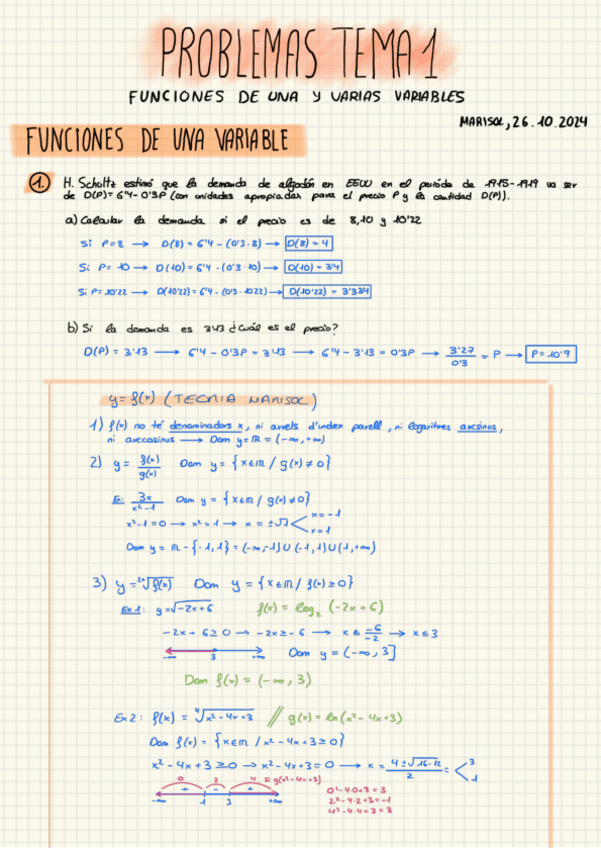 PROBLEMAS TEMA 1
FUNCIONES DE UNA Y VARIAS VARIABLES
MARISOL, 26.10.2024
FUNCIONES DE UNA VARIABLE
1. H. Schultz estimó que la demanda de algodón en EEUU en el periodo de 1915-1919 va ser
de D(P)= 6'4- 0'3P (con unidades apropiadas para el precio P y la cantidad D(P)).
a) Calcular la demanda si el precio es de 8, 10 y 10'22
Si P=8 → D(8) = 6'4 - (0'3·8) → D(8) = 4
Si P= 10 → D(10) = 6'4 - (0'3·10) → D(10) = 3'4
Si P= 10'22 → D(10'22) = 6'4 - (0'3·10'22) → D(10'22) = 3'334
b) Si la demanda es 3'13 ¿Cuál es el precio?
D(P) = 3'13 → 6'4 - 0'3P = 3'13 → 6'4 - 3'13 = 0'3P → 3'27/0'3 = P → P=10'9
y= f(x) (TEORIA MARISOL)
1) f(x) no té denominadors x, ni arrels d'index parell, ni logaritmes arcsinus,
ni arccosinus → Dom y= ℝ = (-∞, +∞)
2) y = f(x)/g(x) Dom y = {x∈ℝ / g(x) ≠ 0}
Ex: 3x/x²-1 Dom y = {x∈ℝ / g(x) ≠ 0}
x²-1 = 0 → x² = 1 → x = ±√1 < x=-1
x=1
Dom y = ℝ - {-1, 1} = (-∞, -1) ∪ (-1, 1) ∪ (1, +∞)
3) y = ²ⁿ√f(x) Dom y = {x∈ℝ / f(x) ≥ 0}
Ex 1: y = √-2x+6 f(x) = log₂ (-2x + 6)
-2x + 6 ≥ 0 → -2x ≥ -6 → x ≤ -6/-2 → x ≤ 3
-∞ 3 +∞ Dom y = (-∞, 3]
Dom f(x) = (-∞, 3)
Ex 2: f(x) = ⁴√x²-4x+3 // g(x) = ln(x²-4x+3)
Dom f(x) = {x∈ℝ / x²-4x+3 ≥ 0}
x²-4x+3 ≥ 0 → x²-4x+3 = 0 → x = 4±√16-12/2 = < 3
1
0 2 4
+ - +
-∞ 1 3 +∞
0²-4·0+3 = 3
2²-4·2+3 = -1
4²-4·4+3 = 3